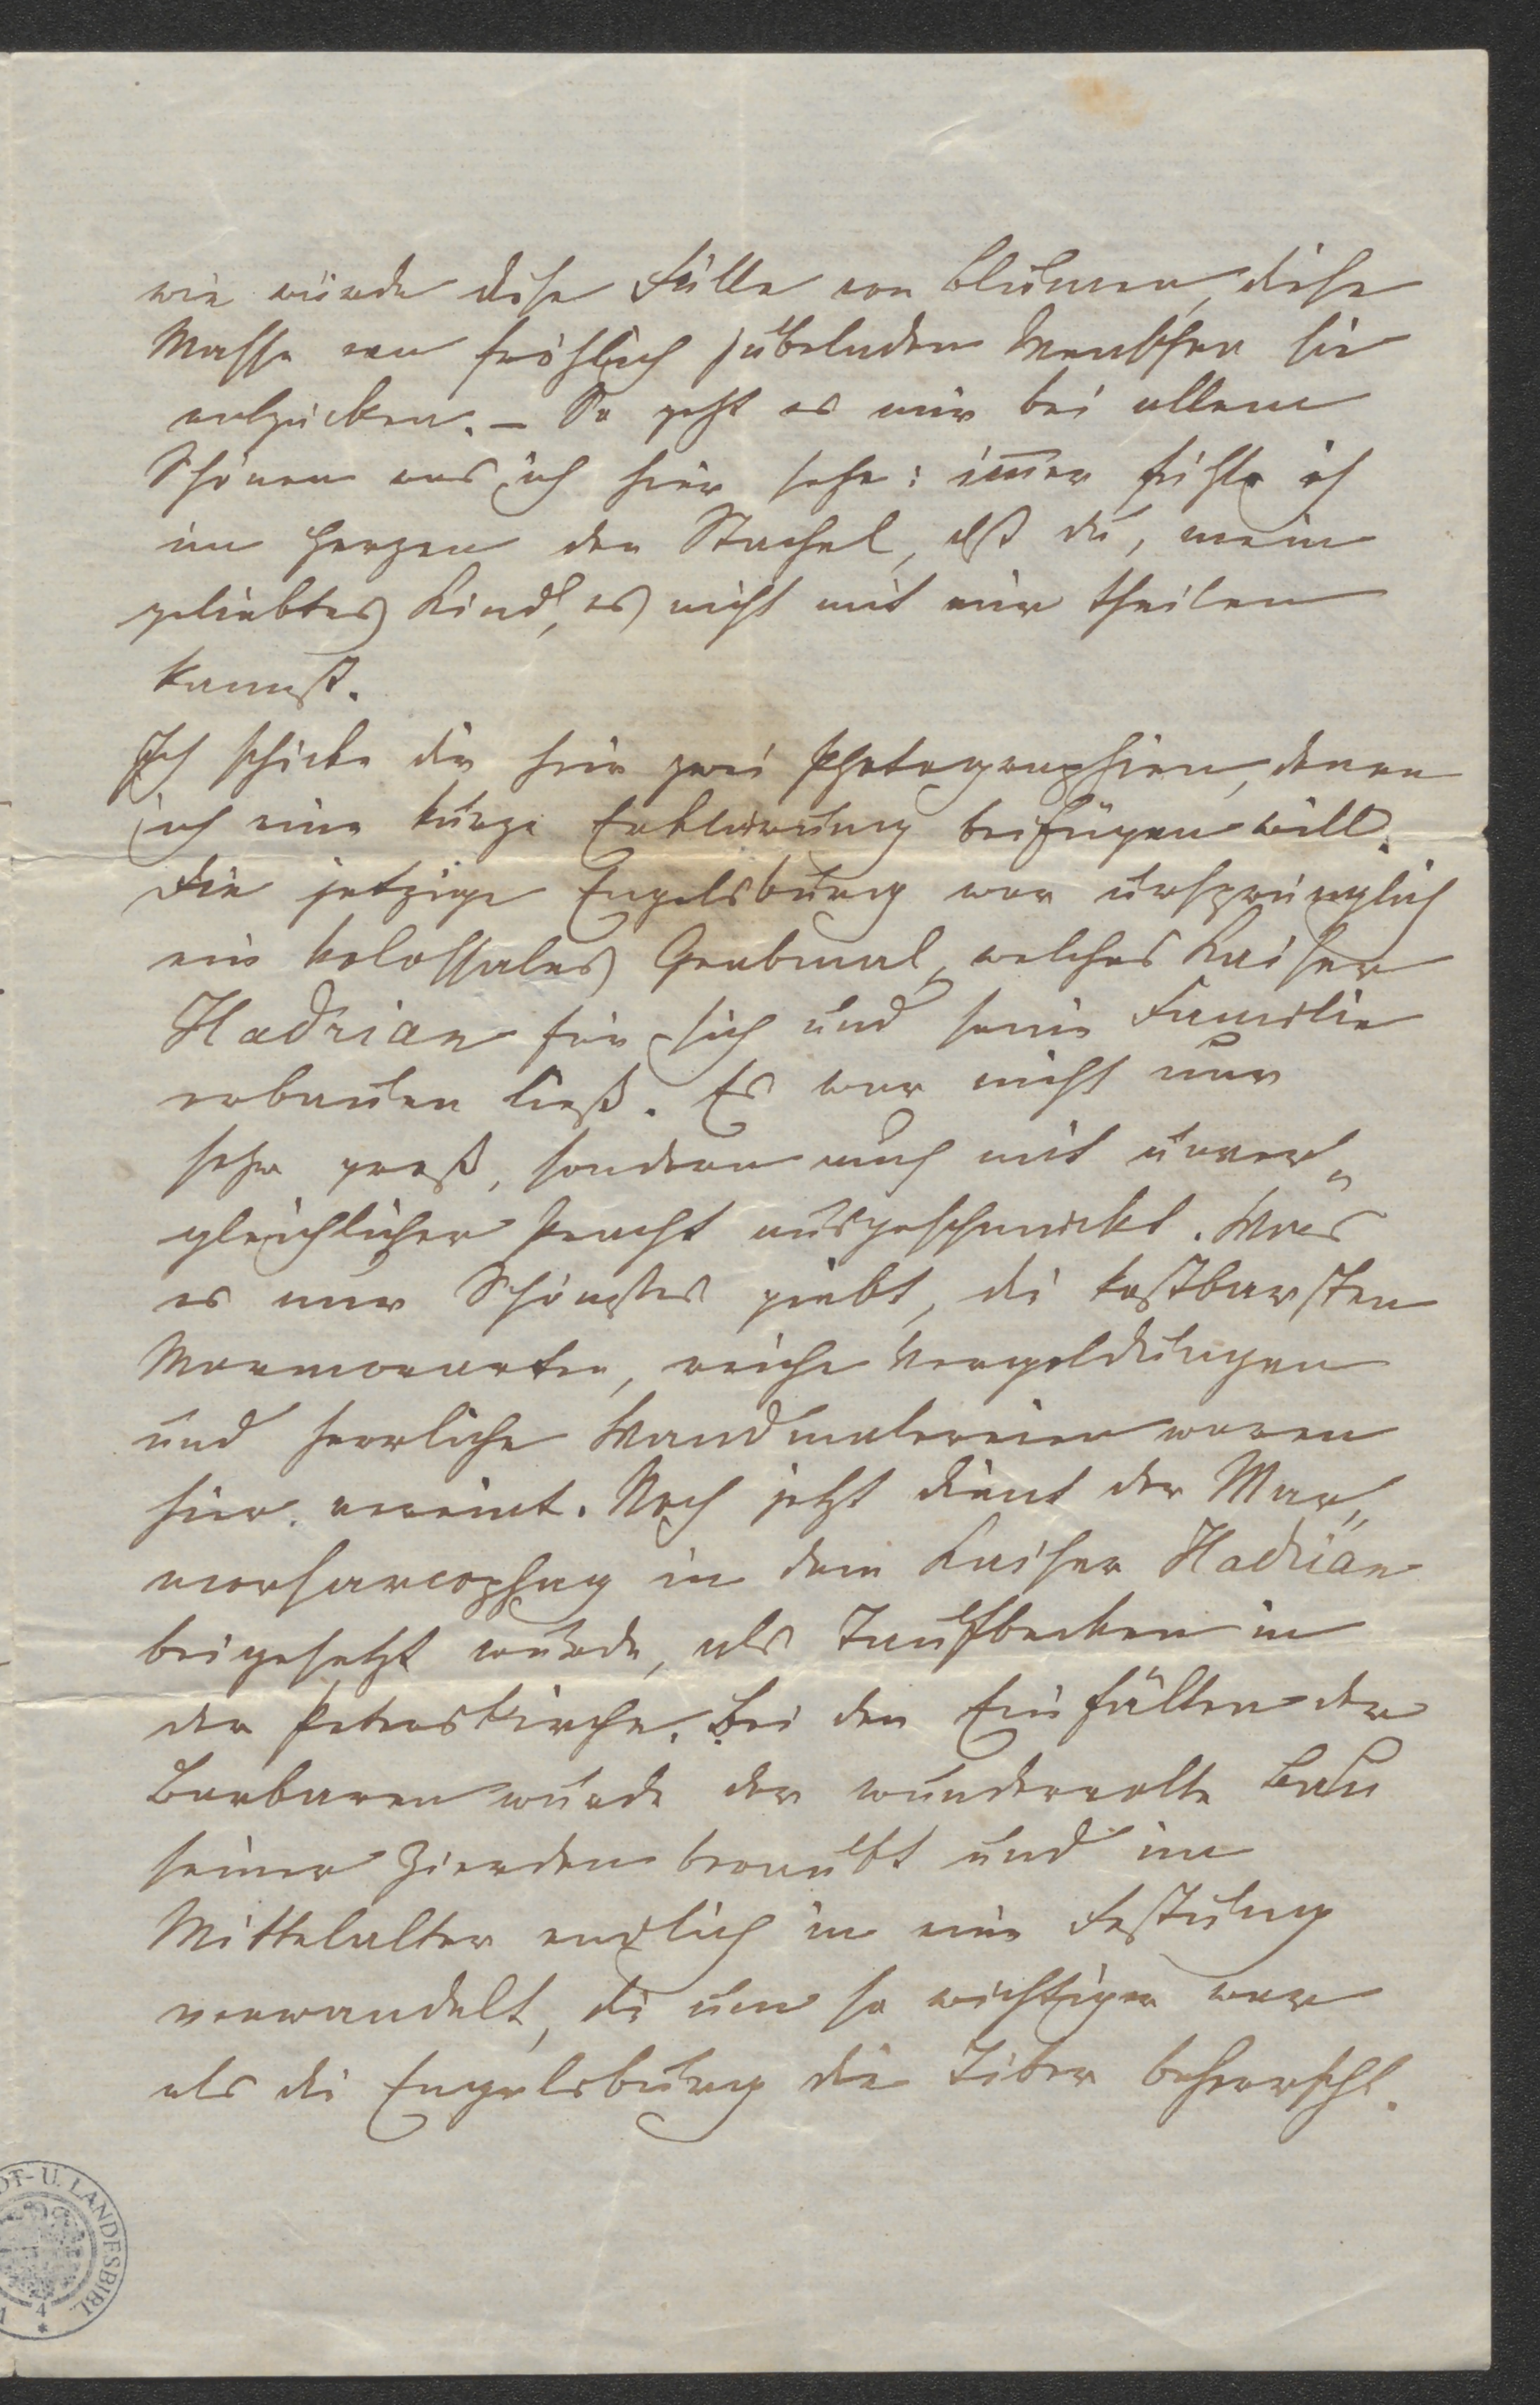 wie würde diese Fülle von Blumen, diese
Masse von fröhlich jubelnden Menschen sie
entzücken. – So geht es mir bei allem
Schönen was ich hier sehe: im̅er fühle ich
im Herzen den Stachel, daß du, mein
geliebtes Kind, es nicht mit mir theilen
kannst.
Ich schicke dir hier zwei Photographien, denen
ich eine kurze Erklärung beifügen will.
Die jetzige Engelsburg war ursprünglich
ein kolossales Grabmal, welches Kaiser
Hadrian für sich und seine Familie
erbauen ließ. Es war nicht nur
sehr groß, sondern auch mit unver„
gleichlicher Pracht ausgeschmückt. Was
es nur Schönstes giebt, die kostbarsten
Marmorarten, reiche Vergoldungen
und herrliche Wandmalereien waren
hier vereint. Noch jetzt dient der Mar„
morsarcophag in dem Kaiser Hadrian
beigesetzt wurde, als Taufbecken in
der Peterskirche. Bei den Einfällen der
Barbaren wurde der wundervolle Bau
seiner Zierden beraubt und im
Mittelalter endlich in eine Festung
verwandelt, die um so wichtiger war
als die Engelsburg die Tiber beherrscht.
DT- U. LANDESBIBL.
4